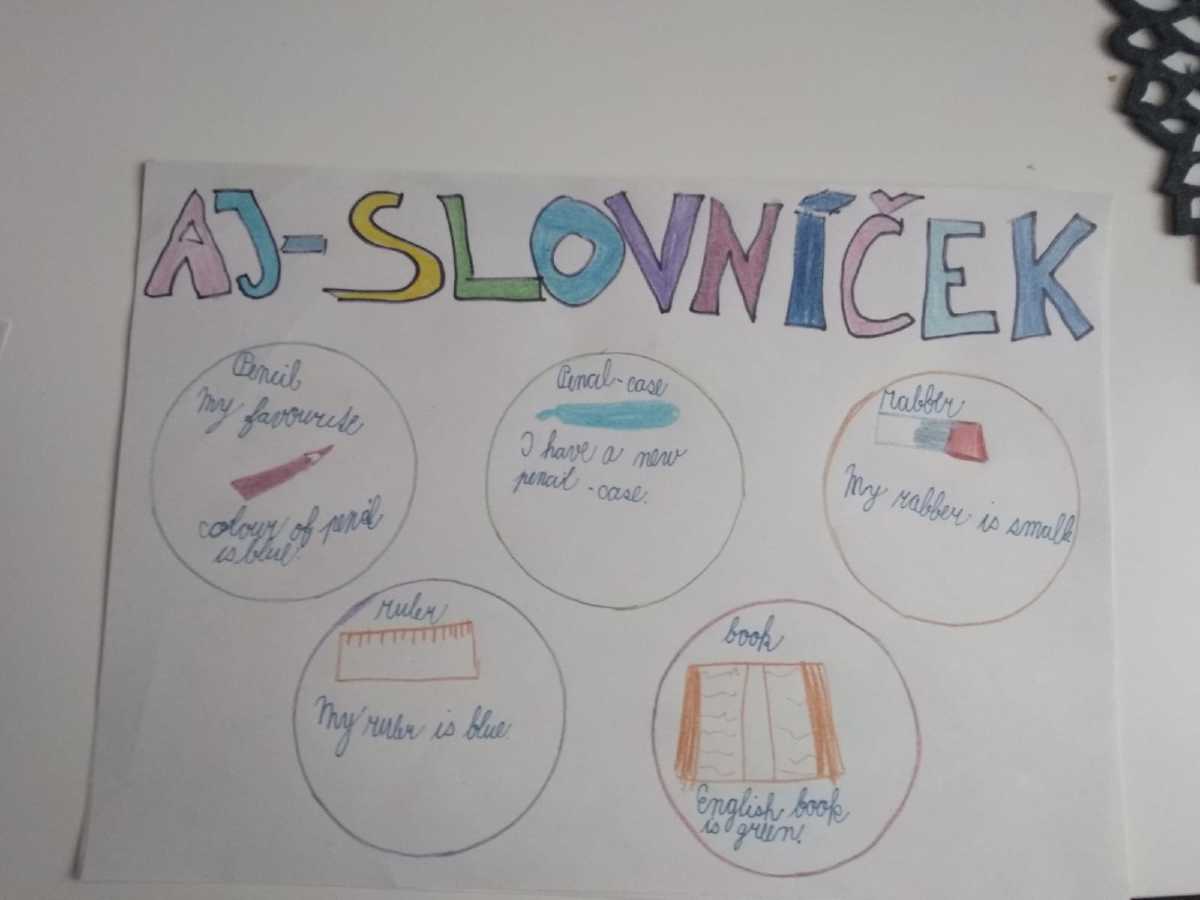 AJ-SLOVNÍČEK
Pencil
My favourite
colour of pencil
is blue.
Pencil-case
I have a new
pencil-case.
rabber
My rabber is small
ruler
My ruler is blue.
book
English book
is green.